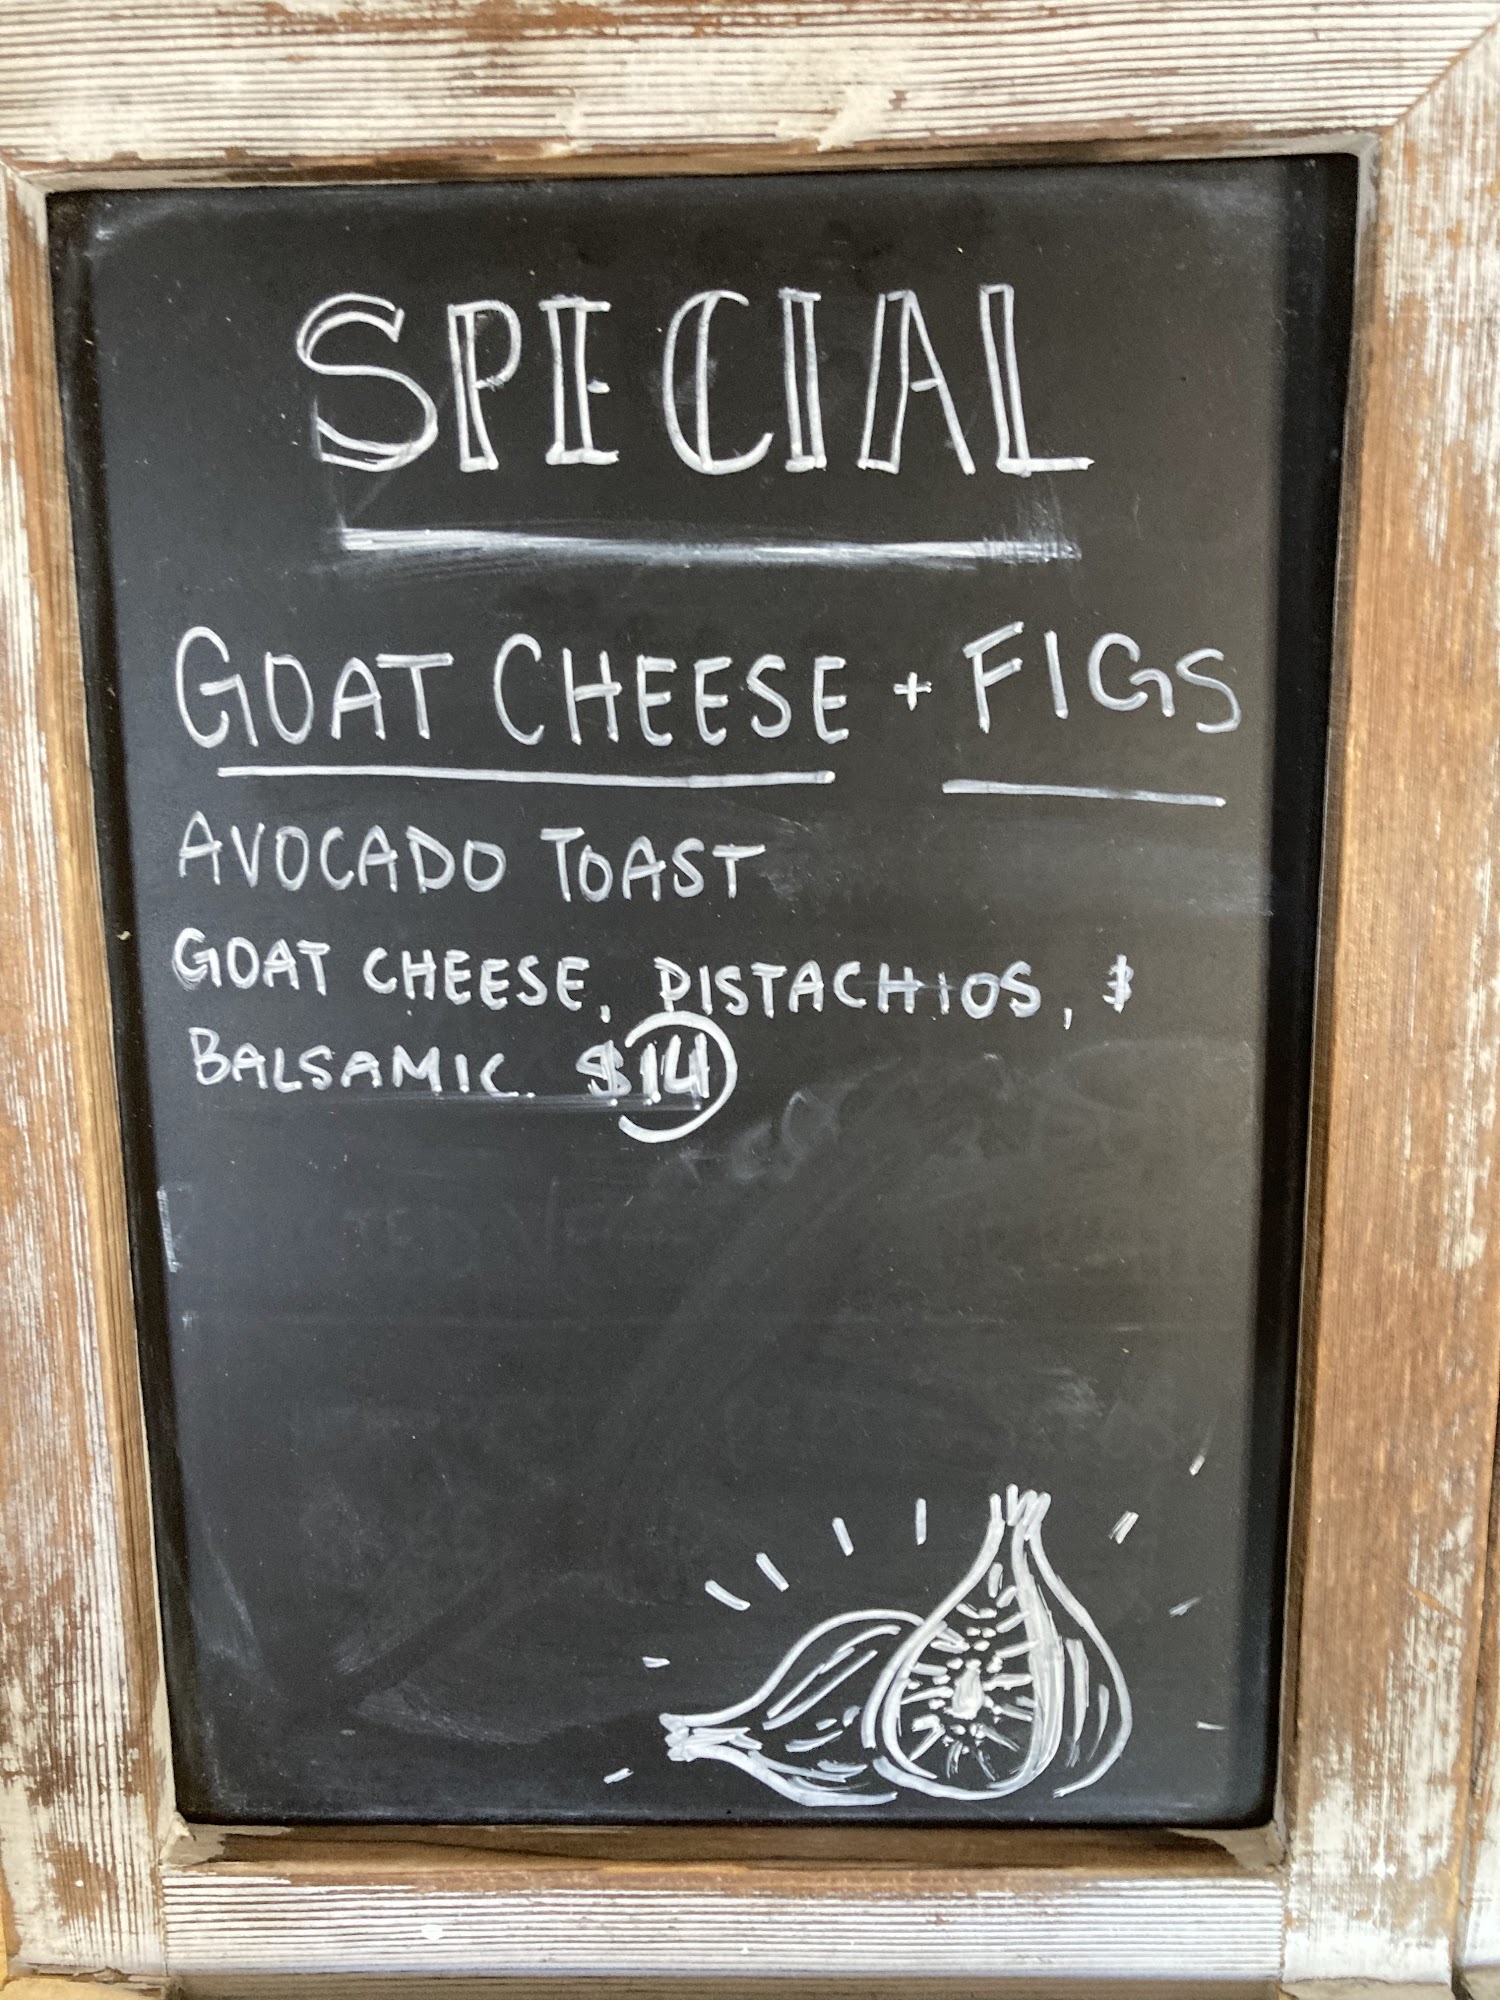 SPECIAL
GOAT CHEESE + FIGS
AVOCADO TOAST
GOAT CHEESE, PISTACHIOS, &
BALSAMIC. $14